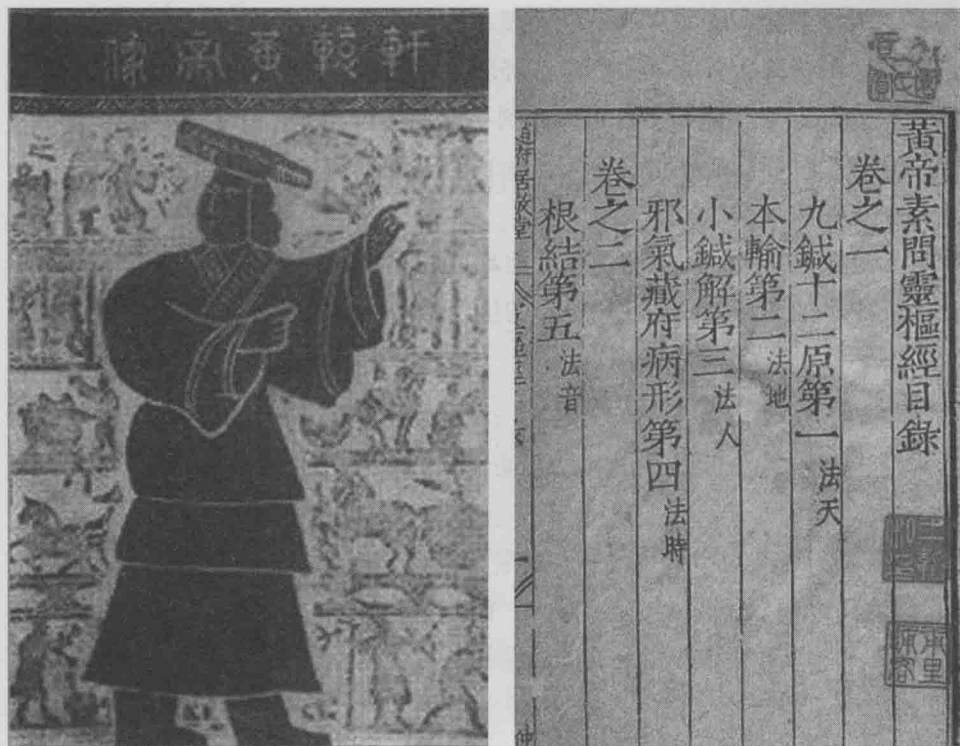 軒轅黃帝像
黃帝素問靈樞經目錄
卷之一
九鍼十二原第一 法天
本輸第二 法地
小鍼解第三 法人
邪氣藏府病形第四 法時
卷之二
根結第五 法音